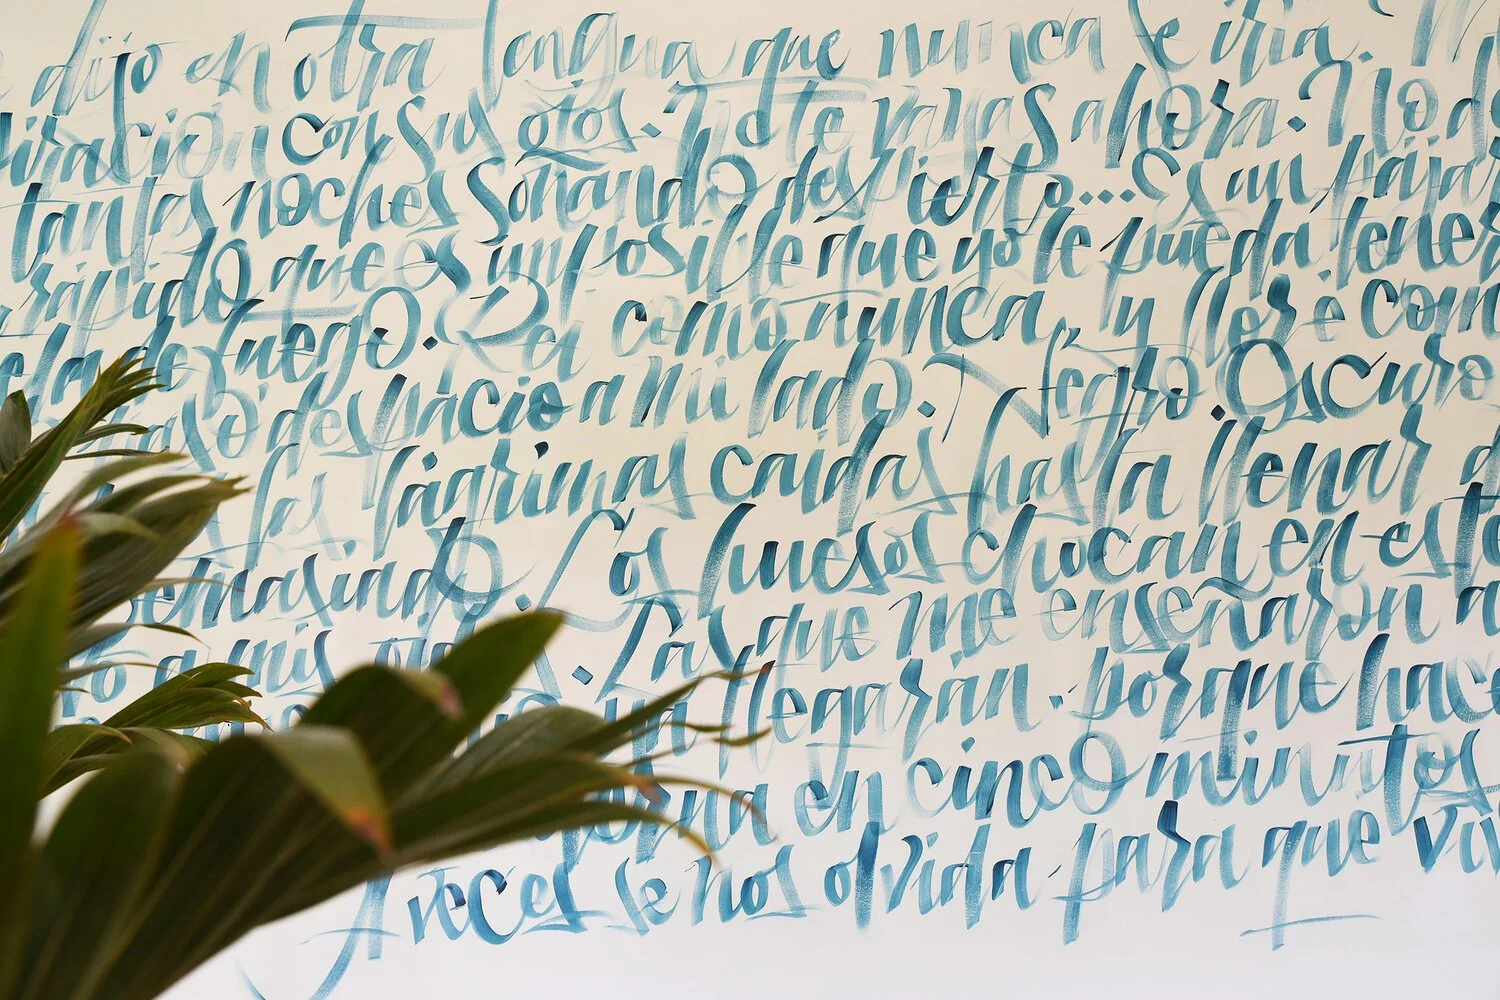 dijo en otra lengua que nunca se iría.
con sus ojos. No te vayas ahora. No
tantas noches soñando despierto... Es un
rápido que es imposible que yo le pueda tener
de fuego. Reí como nunca, y lloré
despacio a mi lado. Negro. Oscuro
las lágrimas caídas hasta llenar
demasiado. Los huesos chocan en
a mis. Las que me enseñaron
llegarán. porque
en cinco minutos
A veces se nos olvida para que